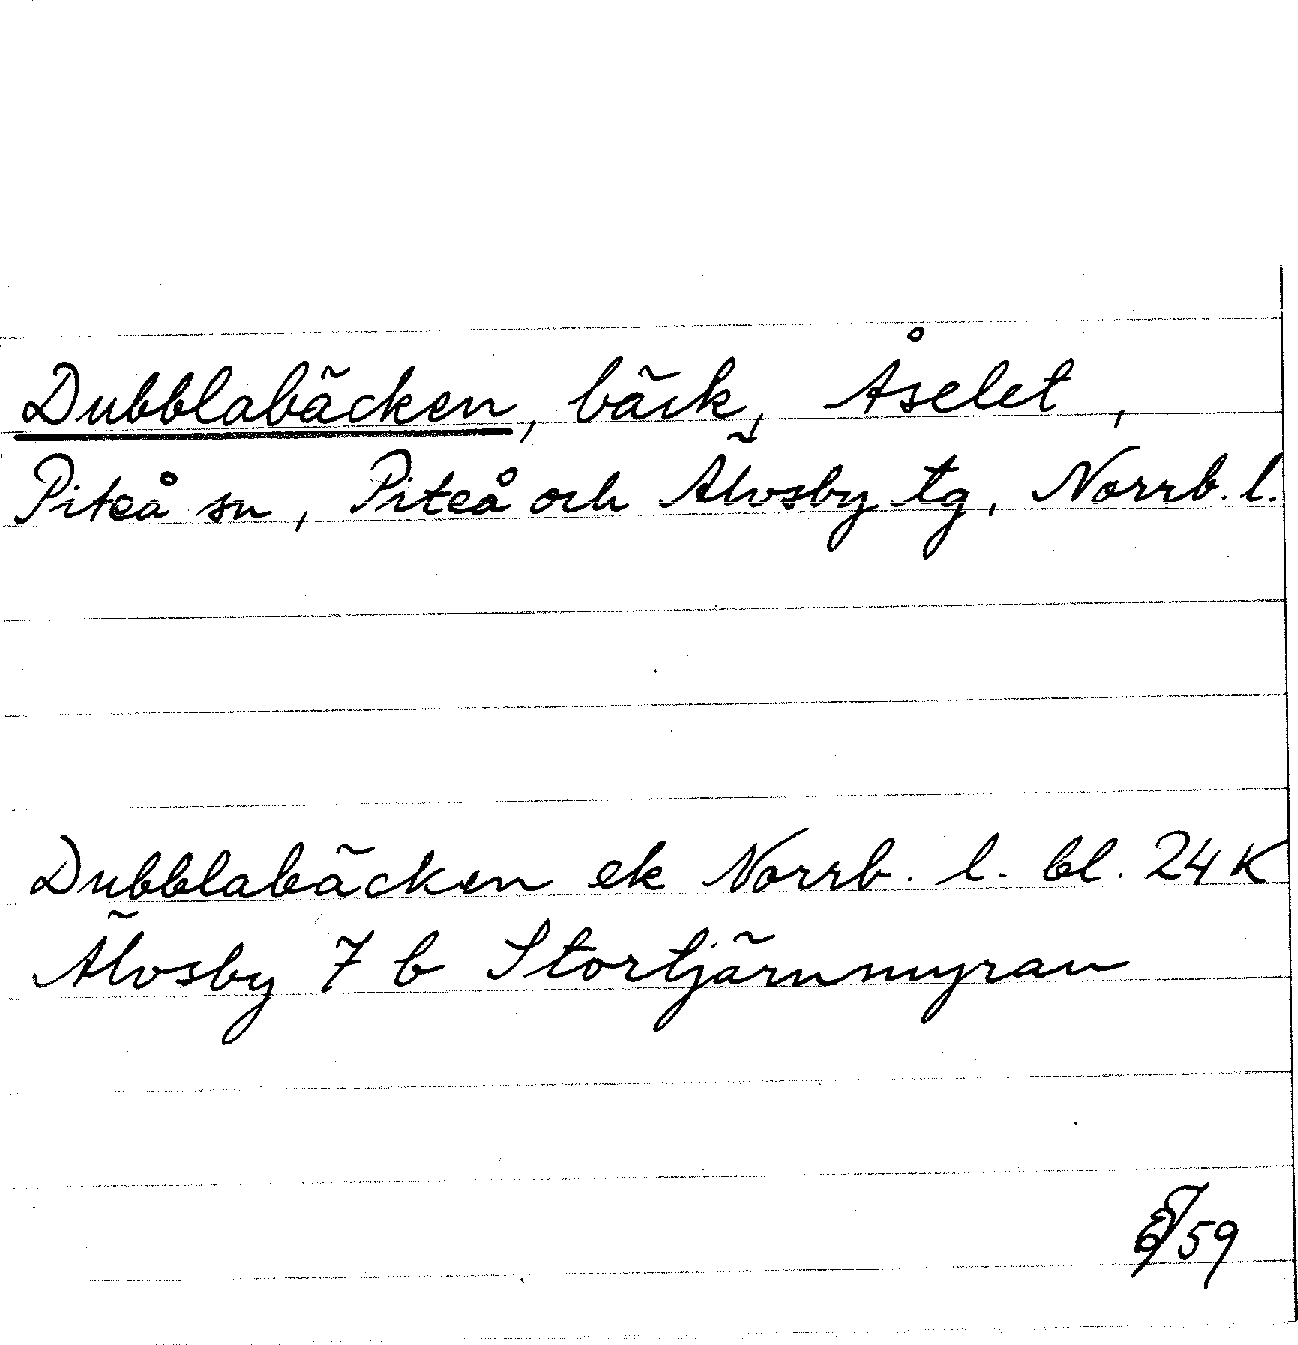 Dubblabäcken, bäck, Åselet,
Piteå sn, Piteå och Älvsby tg, Norrb. l.
Dubblabäcken ek Norrb. l. bl. 24 K
Älvsby 7 b Stortjärnmyran
59